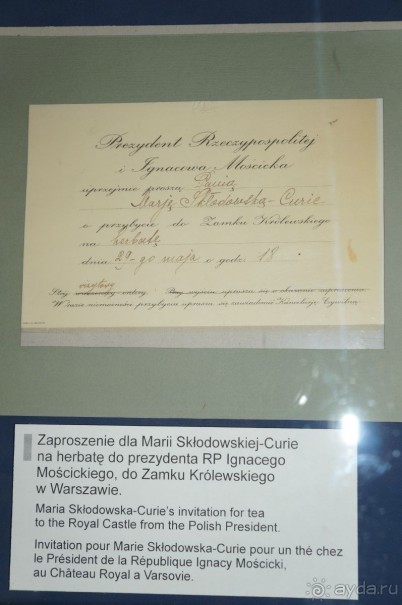 Prezydent Rzeczypospolitej
i Ignacowa Mościcka
uprzejmie proszą Panią
Marję Skłodowską-Curie
o przybycie do Zamku Królewskiego
na herbatę
dnia 29-go maja o godz. 18
Strój wizytowy
W razie niemożności przybycia uprasza się zawiadomić Kancelarję Cywilną.
Zaproszenie dla Marii Skłodowskiej-Curie
na herbatę do prezydenta RP Ignacego
Mościckiego, do Zamku Królewskiego
w Warszawie.
Maria Skłodowska-Curie's invitation for tea
to the Royal Castle from the Polish President.
Invitation pour Marie Skłodowska-Curie pour un thé chez
le Président de la République Ignacy Mościcki,
au Château Royal a Varsovie.
ayda.ru